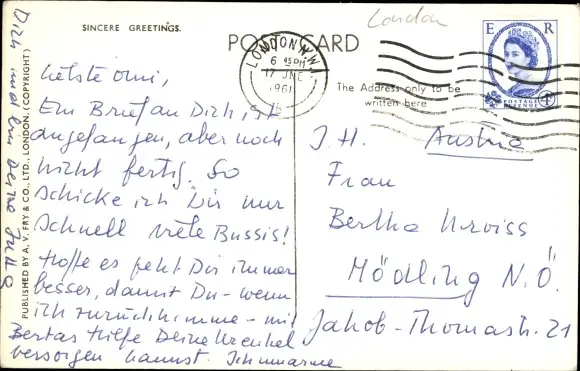 London
SINCERE GREETINGS.
POST CARD
LONDON N.W.
6 45 PM
17 JNE
1961
E R
POSTAGE
REVENUE
4D
The Address only to be
written here
PUBLISHED BY A. V. FRY & CO., LTD., LONDON. (COPYRIGHT)
Liebste Omi,
Ein Brief an Dich, ist
angefangen, aber noch
nicht fertig. So
schicke ich Dir nur
schnell viele Bussis!
Hoffe es geht Dir immer
besser, damit Du - wenn
ich zurückkomme - mit
Bertas Hilfe Deine Urenkel
versorgen kannst. Ich umarme
Dich und bin Deine
I.H. Austria
Frau
Bertha
Mödling N.Ö.
Jakob-Thomastr. 21